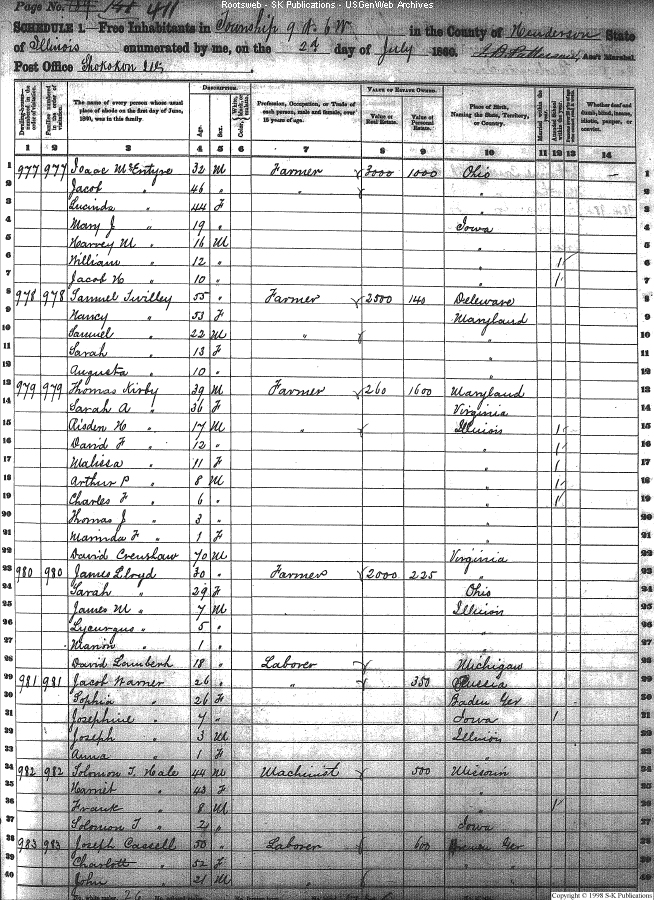 Rootsweb - SK Publications - USGenWeb Archives
Page No. 411
SCHEDULE 1. Free Inhabitants in Township 9 N 6 W in the County of Henderson State
of Illinois enumerated by me, on the 2d day of July 1860. Ass't Marshal.
Post Office Shokokon Ills
Dwelling-houses numbered in the order of visitation. Families numbered in the order of visitation. The name of every person whose usual place of abode on the first day of June, 1860, was in this family. DESCRIPTION. Age. Sex. Profession, Occupation, or Trade of each person, male and female, over 15 years of age. VALUE OF ESTATE OWNED. Value of Real Estate. Value of Personal Estate. Place of Birth, Naming the State, Territory, or Country. Married within the year. Attended School within the year. Whether deaf and dumb, blind, insane, idiotic, pauper, or convict.
1 2 3 4 5 6 7 8 9 10 11 12 13 14
1 977 977 Isaac McEntyre 32 M Farmer 3000 1000 Ohio 1
2 Jacob " 46 " " " 2
3 Lucinda " 44 F " 3
4 Mary J " 19 " Iowa 4
5 Harvey M " 16 M " 5
6 William " 12 " " 1 6
7 Jacob H " 10 " " 1 7
8 978 978 Samuel Twilley 55 " Farmer 2500 140 Deleware 8
9 Nancy " 53 F Maryland 9
10 Samuel " 22 M " " 10
11 Sarah " 13 F " 11
12 Augusta " 10 " " 12
13 979 979 Thomas Kirby 39 M Farmer 260 1600 Maryland 13
14 Sarah A " 36 F Virginia 14
15 Risden H " 17 M " Illinois 1 15
16 David F " 12 " " 1 16
17 Malissa " 11 F " 1 17
18 Arthur P " 8 M " 1 18
19 Charles F " 6 " " 1 19
20 Thomas J " 3 " " 20
21 Marinda F " 1 F " 21
22 David Crenshaw 70 M Virginia 22
23 980 980 James Lloyd 30 " Farmer 2000 225 " 23
24 Sarah " 29 F Ohio 24
25 James M " 7 M Illinois 25
26 Lycurgus " 5 " " 26
27 Marion " 1 " " 27
28 David 18 " Laborer Michigan 28
29 981 981 Jacob Warner 26 " " 350 29
30 Sophia " 26 F Baden Ger 30
31 Josephine " 4 " Iowa 1 31
32 Joseph " 3 M Illinois 32
33 Anna " 1 F " 33
34 982 982 Solomon T. Hale 44 M Machinist 500 Missouri 34
35 Harriet " 43 F " 35
36 Frank " 8 M " 1 36
37 Solomon T " 2 " Iowa 37
38 983 983 Joseph Cassell 50 " Laborer 600 Ger 38
39 Charlott " 52 F " 39
40 John " 21 M " " 40
Copyright © 1998 S-K Publications